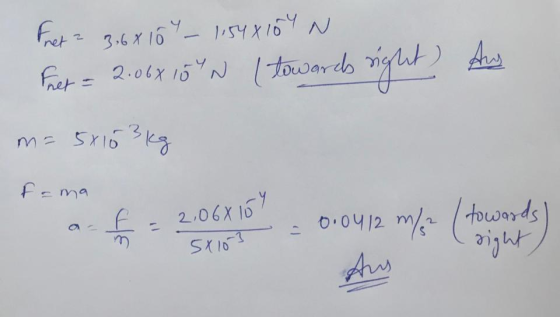 Fnet = 3.6×10⁻⁴ − 1.54×10⁻⁴ N
Fnet = 2.06×10⁻⁴ N (towards right) Ans
m = 5×10⁻³ kg
f = ma
a = f/m = 2.06×10⁻⁴/5×10⁻³ = 0.0412 m/s² (towards right)
Ans